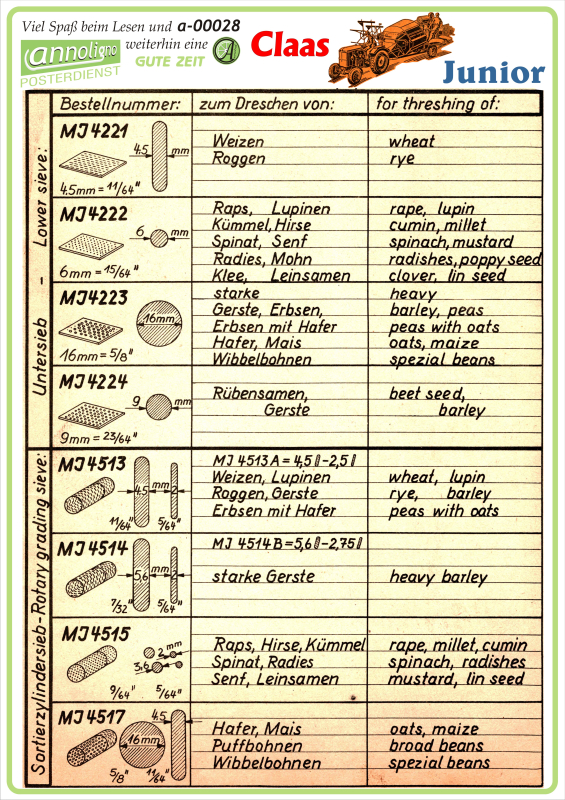 Viel Spaß beim Lesen und a-00028
weiterhin eine
GUTE ZEIT
annoligno
POSTERDIENST
A
Claas
Junior
Bestellnummer: zum Dreschen von: for threshing of:
Untersieb - Lower sieve:
MJ4221
4.5 mm
4.5mm = 11/64"
Weizen wheat
Roggen rye
MJ4222
6 mm
6mm = 15/64"
Raps, Lupinen rape, lupin
Kümmel, Hirse cumin, millet
Spinat, Senf spinach, mustard
Radies, Mohn radishes, poppy seed
Klee, Leinsamen clover, lin seed
MJ4223
16mm
16mm = 5/8"
starke heavy
Gerste, Erbsen, barley, peas
Erbsen mit Hafer peas with oats
Hafer, Mais oats, maize
Wibbelbohnen spezial beans
MJ4224
9 mm
9mm = 23/64"
Rübensamen, beet seed,
Gerste barley
Sortierzylindersieb-Rotary grading sieve:
MJ4513
4,5 mm 2
11/64" 5/64"
MJ 4513A = 4,5 ∥ - 2,5 ∥
Weizen, Lupinen wheat, lupin
Roggen, Gerste rye, barley
Erbsen mit Hafer peas with oats
MJ4514
5,6 mm 2
7/32" 5/64"
MJ 4514B = 5,6 ∥ - 2,75 ∥
starke Gerste heavy barley
MJ4515
2 mm
3,6
9/64" 5/64"
Raps, Hirse, Kümmel rape, millet, cumin
Spinat, Radies spinach, radishes
Senf, Leinsamen mustard, lin seed
MJ4517
4.5
16mm
5/8" 11/64"
Hafer, Mais oats, maize
Puffbohnen broad beans
Wibbelbohnen spezial beans